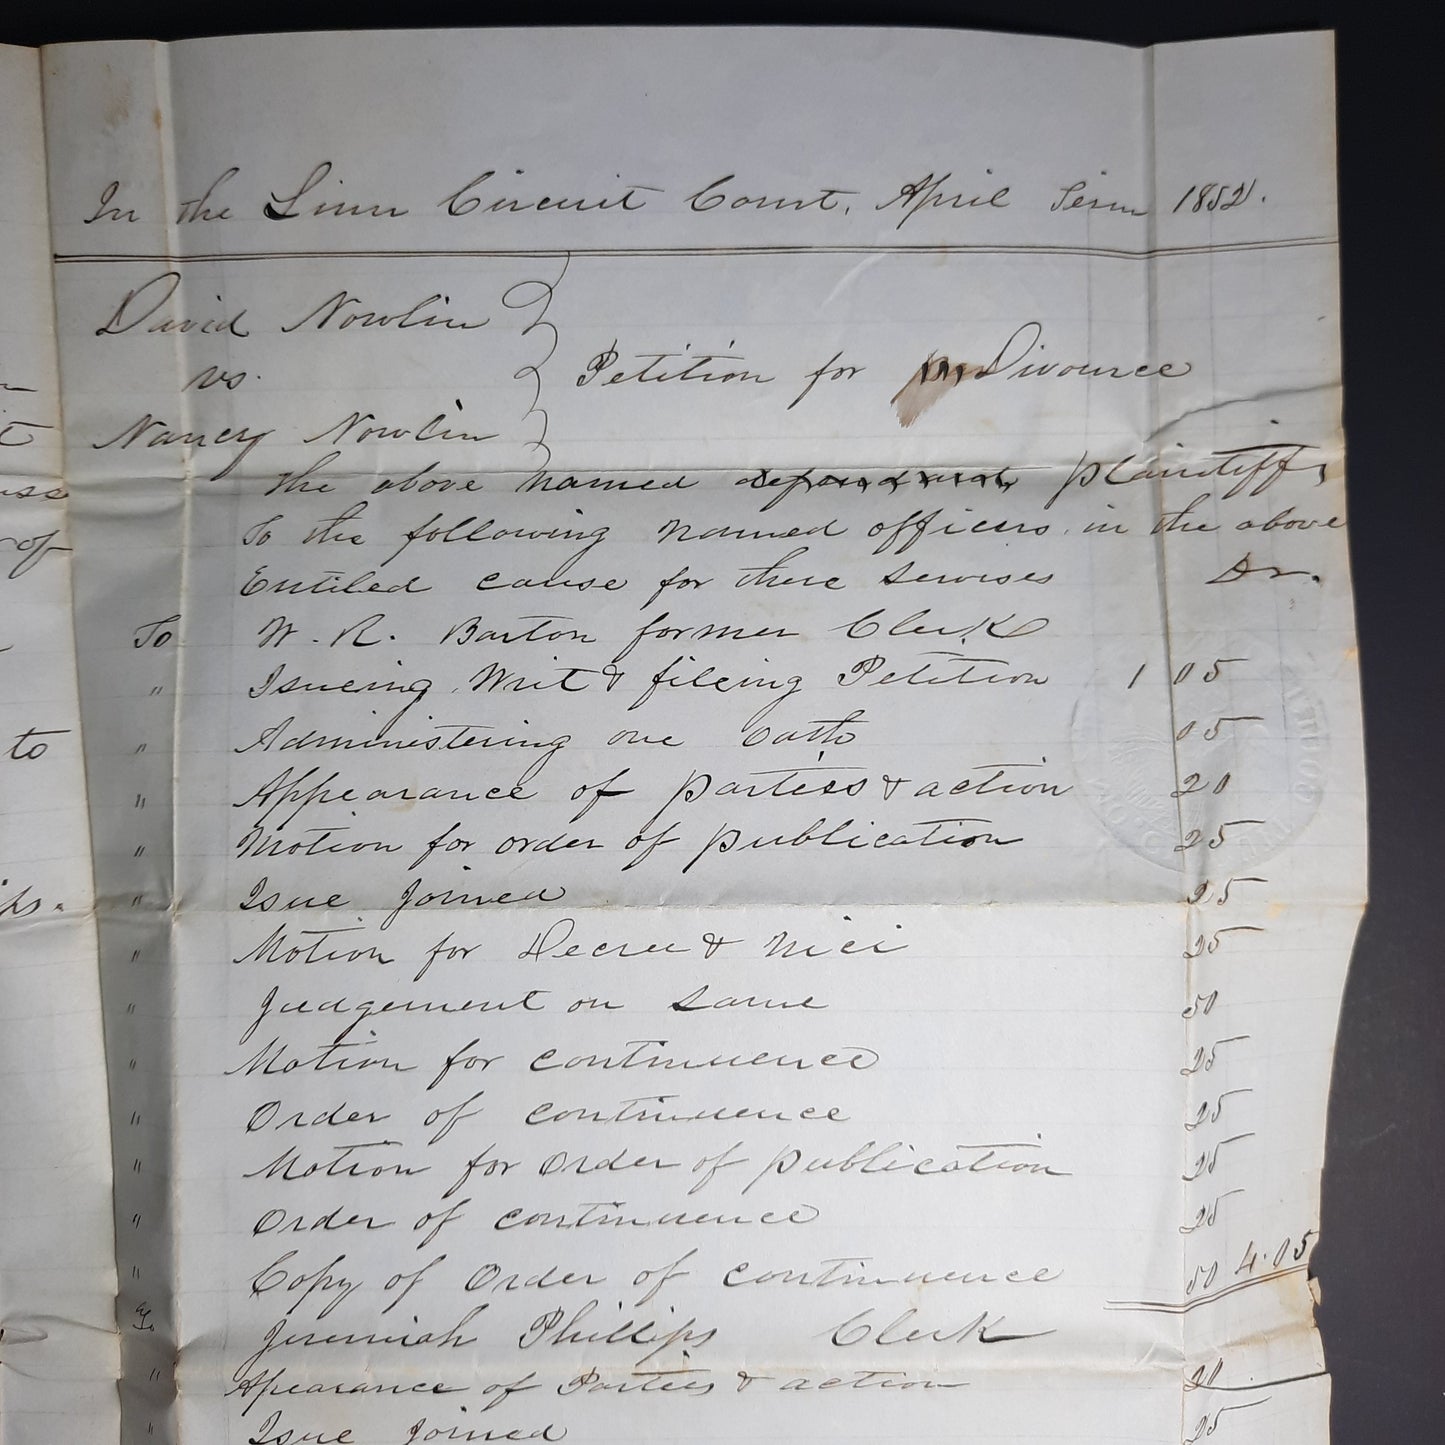 In the Linn Circuit Court, April Term 1852.
David Nowlin
vs.
Petition for Divource
Nancy Nowlin
the above named defendant plaintiff,
To the following named officers in the above
Entiled cause for there servises Dr.
To W. R. Barton former Clerk
" Isueing Writ & fileing Petition 1 05
" Administering one Oath 05
" Appearance of parties & action 20
" Motion for order of publication 25
" Isue Joined 25
" Motion for Decree & Nici 25
" Judgement on same 50
" Motion for continuence 25
" Order of continuence 25
" Motion for Order of publication 25
" Order of continuence 25
" Copy of Order of continuence 50 4.05
To Jeremiah Phillips Clerk
" Apearance of Parties & action 20
" Isue Joined 25
n
t
uss
of
to
ps.